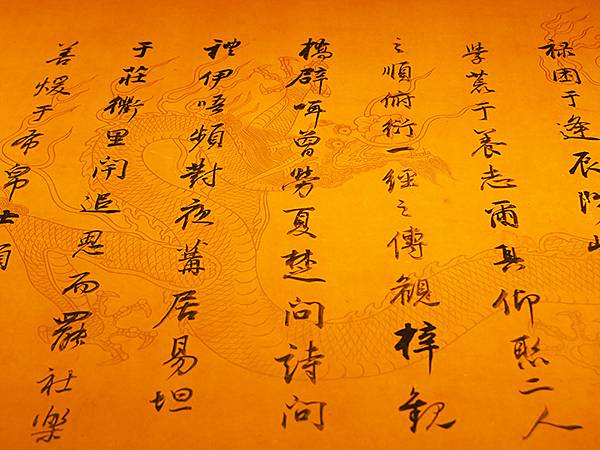 祿困于逢辰
學荒于養志爾其仰聯二人
之順俯衍一經之傳觀梓觀
橋辟咡曾勞夏楚問詩問
禮伊唔頻對夜篝居易坦
于莊衢里閈追思而罷社樂
善煖于布帛